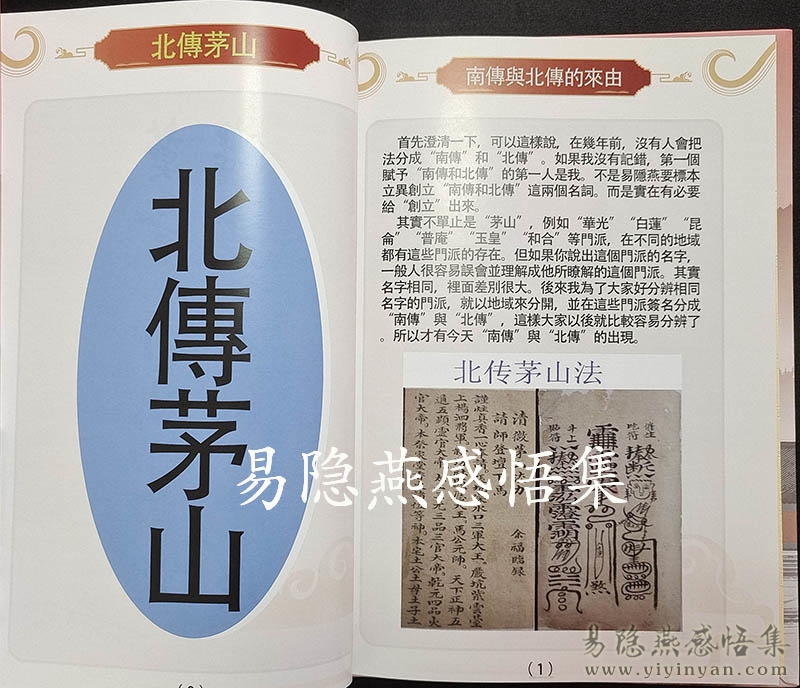 北傳茅山
北傳茅山
南傳與北傳的來由
首先澄清一下，可以這樣說，在幾年前，沒有人會把
法分成“南傳”和“北傳”。如果我沒有記錯，第一個
賦予“南傳和北傳”的第一人是我。不是易隱燕要標本
立異創立“南傳和北傳”這兩個名詞。而是實在有必要
給“創立”出來。
其實不單止是“茅山”，例如“華光”“白蓮”“昆
侖”“普庵”“玉皇”“和合”等門派，在不同的地域
都有這些門派的存在。但如果你說出這個門派的名字，
一般人很容易誤會並理解成他所瞭解的這個門派。其實
名字相同，裡面差別很大。後來我為了大家好分辨相同
名字的門派，就以地域來分開，並在這些門派簽名分成
“南傳”與“北傳”，這樣大家以後就比較容易分辨了
。所以才有今天“南傳”與“北傳”的出現。
北传茅山法
清微
請師登壇
馬
余福臨錄
謹炷真香一心
水口三軍大王
上楊泗將軍
馬公元帥。天下正神五
元三品三官大帝。乾元四品火
易隐燕感悟集
(1)
易隐燕感悟集
www.yiyinyan.com